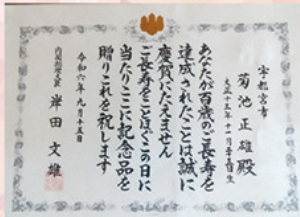 宇都宮市
菊池正雄殿
大正十三年十二月五日生
あなたが百歳のご長寿を
達成されたことは誠に
慶賀にたえません
ご長寿をことほぐこの日に
当たりここに記念品を
贈りこれを祝します
令和六年九月十五日
内閣総理大臣 岸田文雄